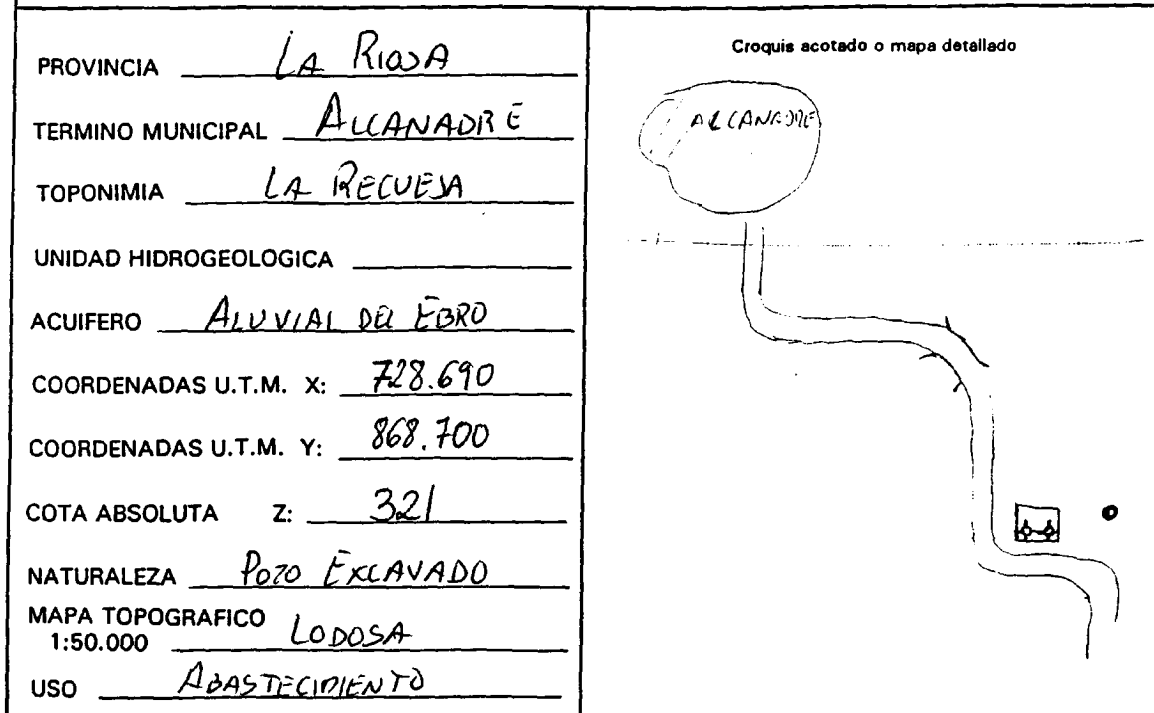 PROVINCIA LA RIOJA
TERMINO MUNICIPAL ALCANADRE
TOPONIMIA LA RECUEJA
UNIDAD HIDROGEOLOGICA
ACUIFERO ALUVIAL DEL EBRO
COORDENADAS U.T.M. X: 728.690
COORDENADAS U.T.M. Y: 868.700
COTA ABSOLUTA Z: 321
NATURALEZA POZO EXCAVADO
MAPA TOPOGRAFICO
1:50.000 LODOSA
USO ABASTECIMIENTO
Croquis acotado o mapa detallado
ALCANADRE